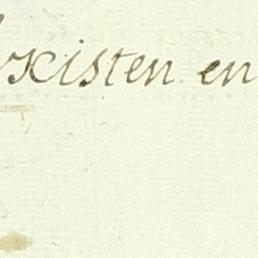 existen en